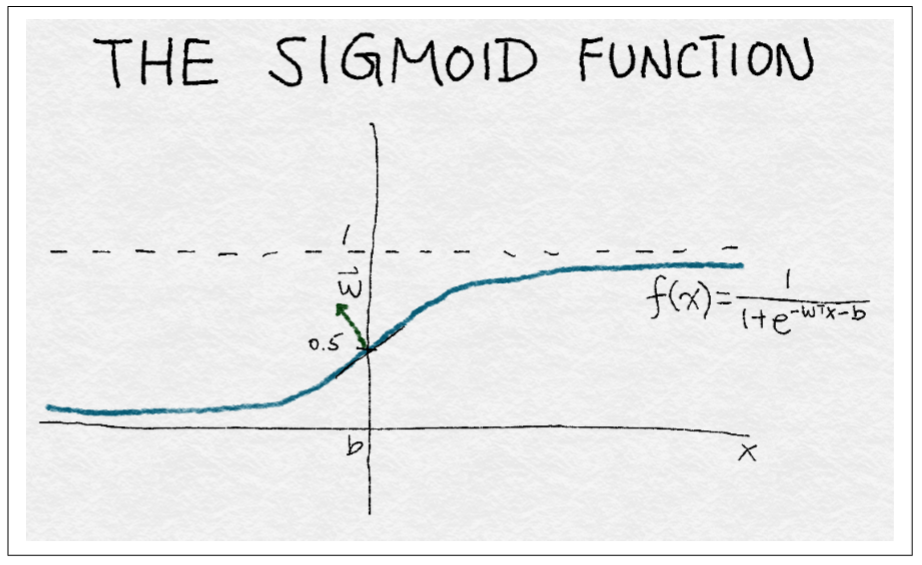 THE SIGMOID FUNCTION
1
w⃗
0.5
f(x)=1/(1+e^{-wᵀx-b})
b
x